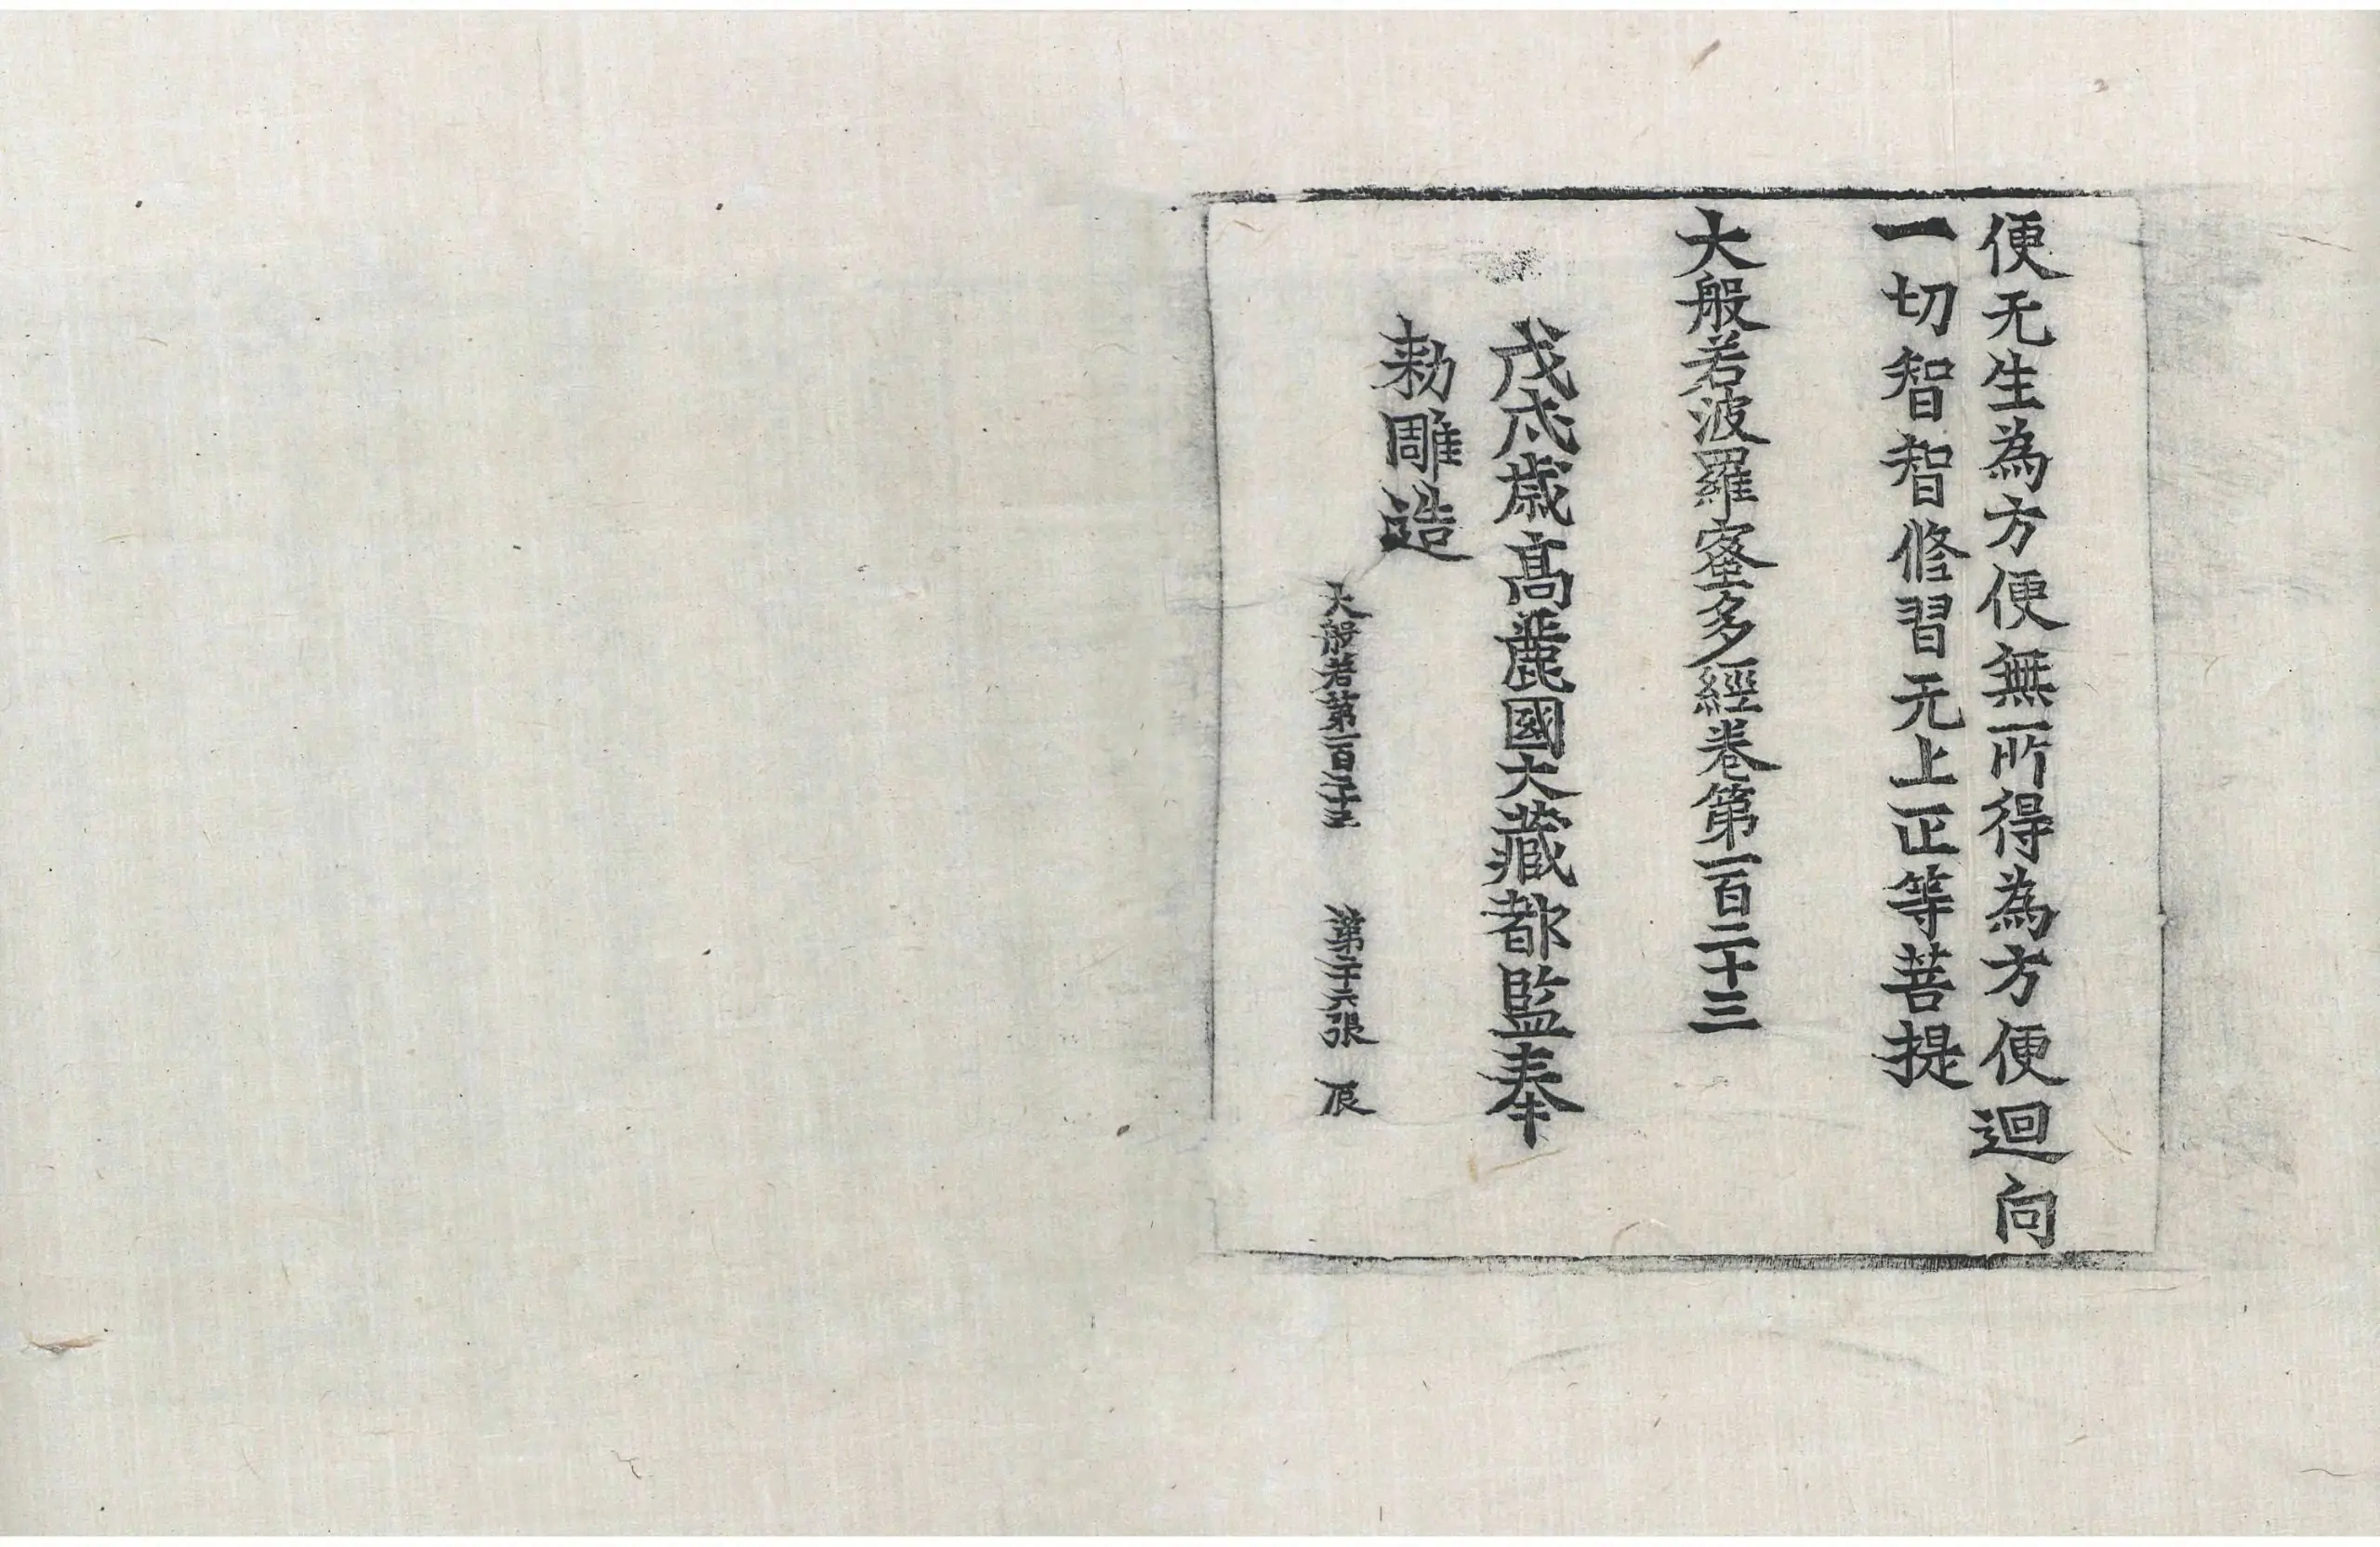 便无生為方便無所得為方便迴向
一切智智修習无上正等菩提
大般若波羅蜜多經卷第一百二十三
戊戌歲高麗國大藏都監奉
勑雕造
大般若第一百二十三　第二十六張　辰